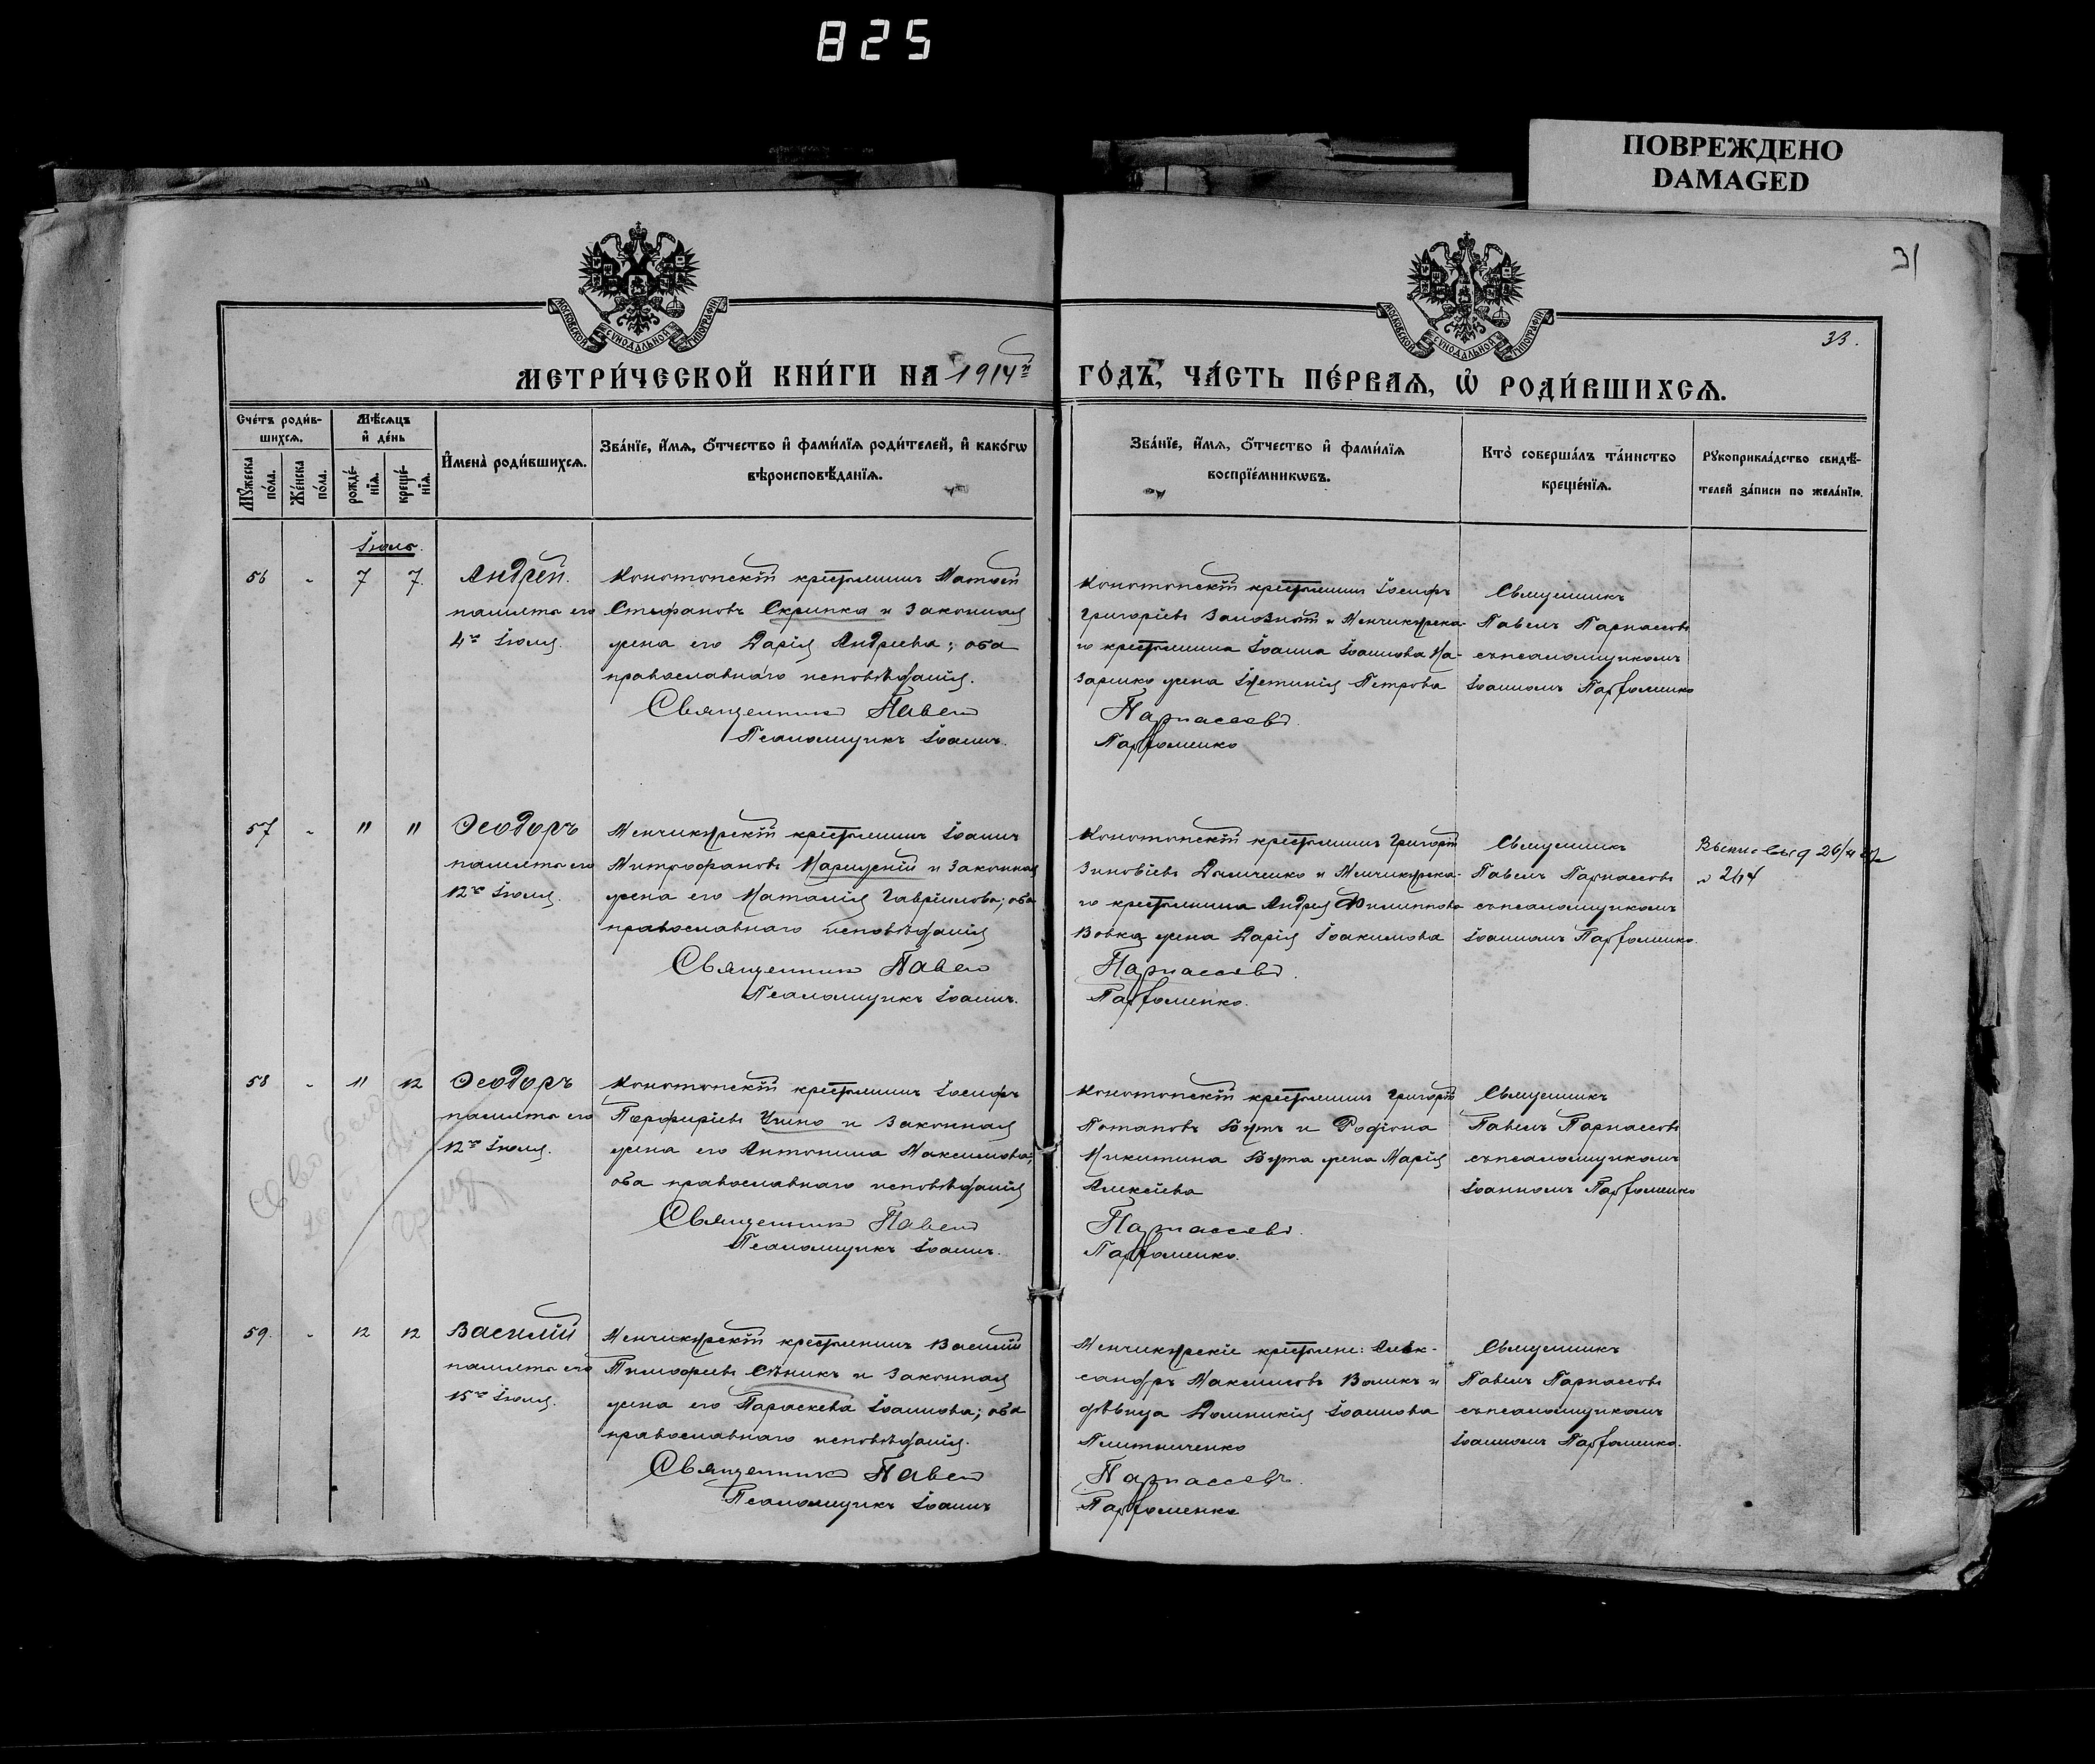 825
ПОВРЕЖДЕНО
DAMAGED
31
33.
МОСКОВСКОЙ СУНОДАЛЬНОЙ ТИПОГРАФІИ
МОСКОВСКОЙ СУНОДАЛЬНОЙ ТИПОГРАФІИ
МЕТРИ́ЧЕСКОЙ КНИ́ГИ НА 1914й ГО́ДЪ, ЧА́СТЬ ПЕ́РВАѦ, Ѡ҆ РОДИ́ВШИХСѦ.
Сче́тъ роди́в-
шихсѧ.
Мꙋ́жеска
по́ла.
Же́нска
по́ла.
Мѣ́сѧцъ
и҆ де́нь
рожде́-
нїѧ.
креще́-
нїѧ.
И҆мена̀ роди́вшихсѧ.
Зва́нїе, и҆́мѧ, ѻ҆́тчество и҆ фами́лїѧ роди́телей, и҆ како́гѡ
вѣроисповѣ́данїѧ.
Зва́нїе, и҆́мѧ, ѻ҆́тчество и҆ фами́лїѧ
воспрїе́мникѡвъ.
Кто̀ соверша́лъ та́инство
креще́нїѧ.
Рꙋкоприкла́дство свидѣ́-
телей за́писи по жела́нїю.
Іюль.
56 - 7 7.
Андрей.
память его
4го Іюля.
Конотопскій крестьянинъ Матѳей
Стефановъ Скрипка и законная
жена его Дарія Андреева; оба
православнаго исповѣданія.
Священникъ Павелъ
Псаломщикъ Іоаннъ.
Конотопскій крестьянинъ Іосифъ
Григоріевъ Заможній и Менчикурска-
го крестьянина Іоанна Іоаннова На-
заренко жена Іустинія Петрова
Парнассовъ.
Парфоменко
Священникъ
Павелъ Парнассовъ
съ псаломщикомъ
Іоанномъ Парфоменко
57 - " "
Ѳеодоръ
память его
12го Іюля.
Менчикурскій крестьянинъ Іоаннъ
Митрофановъ Марицкій и законная
жена его Наталія Гавріилова; оба
православнаго исповѣданія
Священникъ Павелъ
Псаломщикъ Іоаннъ.
Конотопскій крестьянинъ Григорій
Зиновіевъ Демченко и Менчикурска-
го крестьянина Андрея Филиппова
Вовка жена Дарія Іоакимова
Парнассовъ.
Парфоменко.
Священникъ
Павелъ Парнассовъ
съ псаломщикомъ
Іоанномъ Парфоменко.
58 - 11 12
Ѳеодоръ
память его
12го Іюля.
Конотопскій крестьянинъ Іосифъ
Порфиріевъ и законная
жена его Антонина Максимова;
оба православнаго исповѣданія
Священникъ Павелъ
Псаломщикъ Іоаннъ.
Конотопскій крестьянинъ Григорій
Потаповъ Бутъ и Родіона
Никитина Бута жена Марія
Алексіева
Парнассовъ.
Парфоменко.
Священникъ
Павелъ Парнассовъ
съ псаломщикомъ
Іоанномъ Парфоменко
59. - 12 12
Василій
память его
15го Іюля.
Менчикурскій крестьянинъ Василій
Тимофеевъ Сѣникъ и законная
жена его Параскева Іоаннова; оба
православнаго исповѣданія.
Священникъ Павелъ
Псаломщикъ Іоаннъ
Менчикурскіе крестьяне: Алек-
сандръ Максимовъ Воликъ и
дѣвица Домникія Іоаннова
Плитниченко
Парнассовъ.
Парфоменко
Священникъ
Павелъ Парнассовъ
съ псаломщикомъ
Іоанномъ Парфоменко.